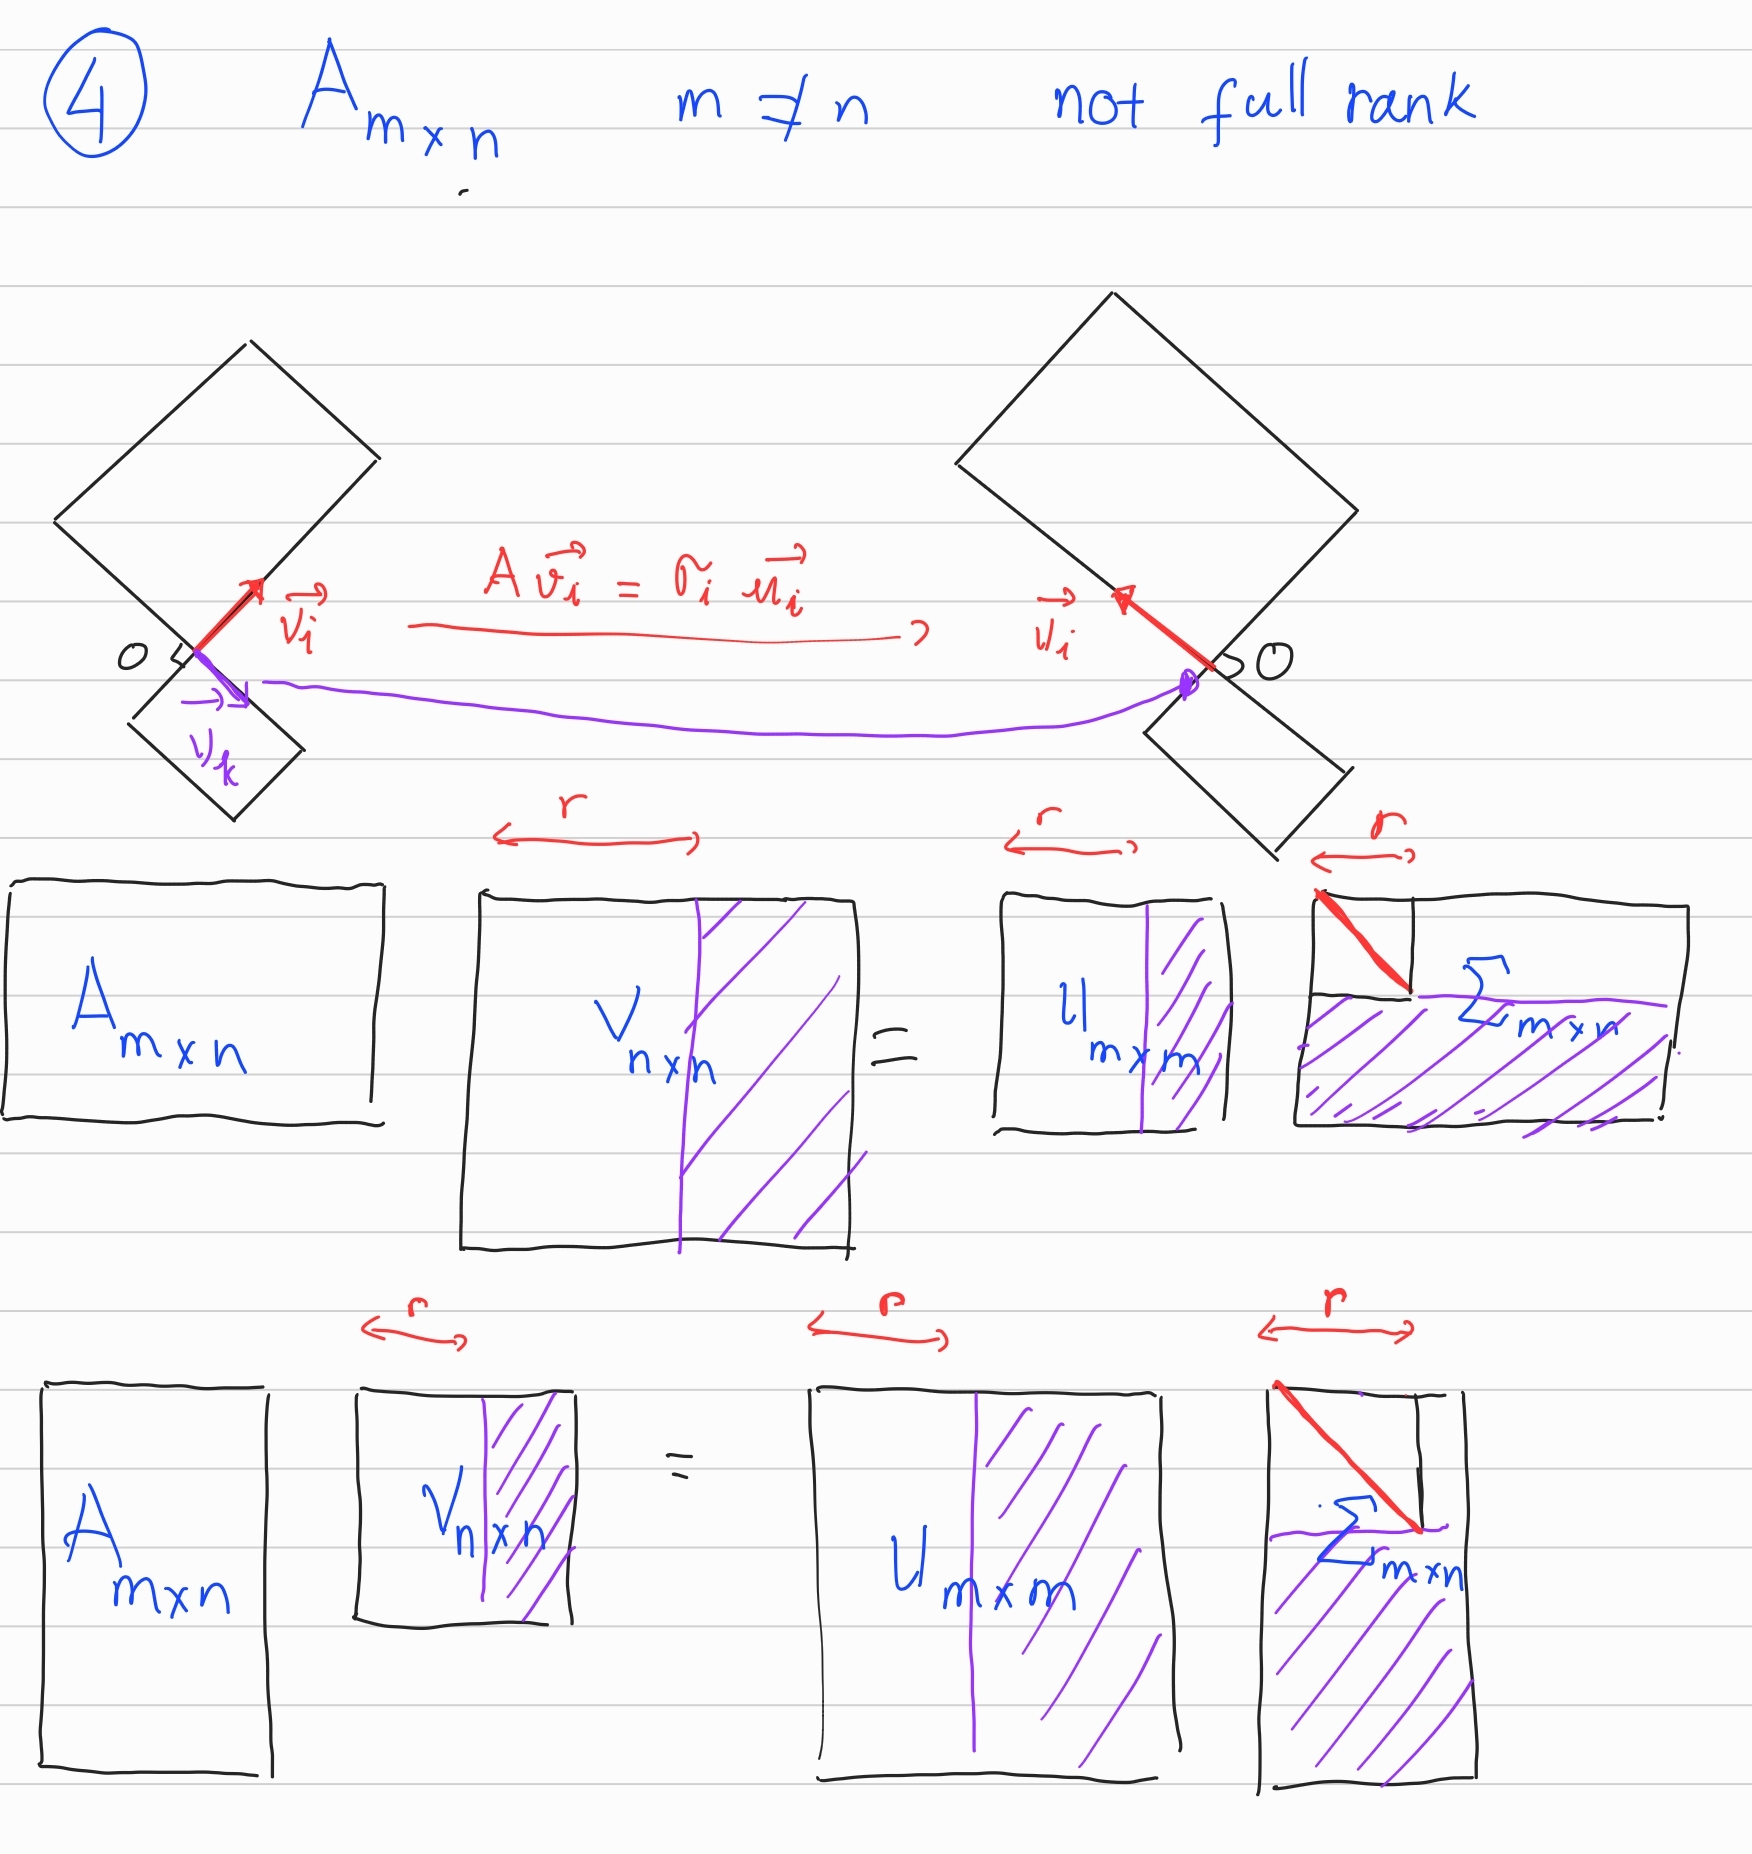 ④ A m×n m ≠ n not full rank
A v⃗i = σi u⃗i
O v⃗i u⃗i O
v⃗k
r r r
A m×n V n×n = U m×m Σ m×n
r r r
A m×n V n×n = U m×m Σ m×n